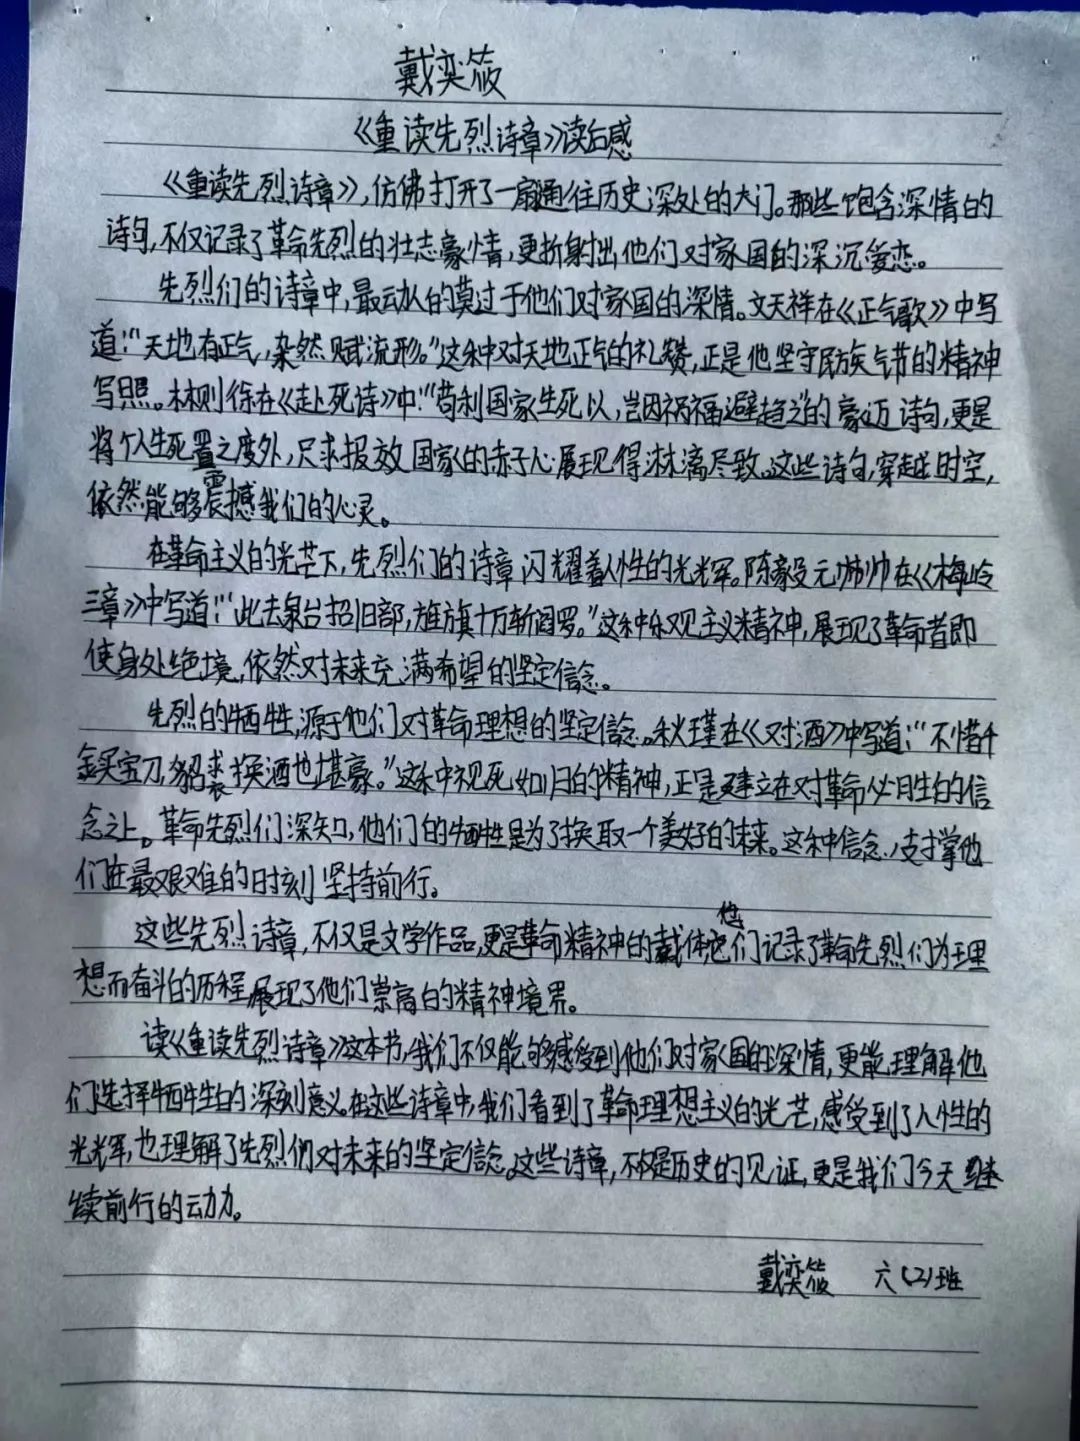 戴奕筱
《重读先烈诗章》读后感
《重读先烈诗章》,仿佛打开了一扇通往历史深处的大门。那些饱含深情的
诗句,不仅记录了革命先烈的壮志豪情,更折射出他们对家国的深沉爱恋。
先烈们的诗章中,最动人的莫过于他们对家国的深情。文天祥在《正气歌》中写
道:“天地有正气,杂然赋流形。”这种对天地正气的礼赞,正是他坚守民族气节的精神
写照。林则徐在《赴死诗》中“苟利国家生死以,岂因祸福避趋之”的豪迈诗句,更是
将个人生死置之度外,只求报效国家的赤子心展现得淋漓尽致。这些诗句,穿越时空,
依然能够震撼我们的心灵。
在革命主义的光芒下,先烈们的诗章闪耀着人性的光辉。陈毅元帅在《梅岭
三章》中写道:“此去泉台招旧部,旌旗十万斩阎罗。”这种乐观主义精神,展现了革命者即
使身处绝境,依然对未来充满希望的坚定信念。
先烈的牺牲,源于他们对革命理想的坚定信念。秋瑾在《对酒》中写道:“不惜千
金买宝刀,貂裘换酒也堪豪。”这种视死如归的精神,正是建立在对革命必胜的信
念之上。革命先烈们深知,他们的牺牲是为了换取一个美好的未来。这种信念,支撑他
们在最艰难的时刻坚持前行。
这些先烈诗章,不仅是文学作品,更是革命精神的载体,他们记录了革命先烈们为理
想而奋斗的历程,展现了他们崇高的精神境界。
读《重读先烈诗章》这本书,我们不仅能够感受到他们对家国的深情,更能理解他
们选择牺牲的深刻意义。在这些诗章中,我们看到了革命理想主义的光芒,感受到了人性的
光辉,也理解了先烈们对未来的坚定信念。这些诗章,不仅是历史的见证,更是我们今天继
续前行的动力。
戴奕筱 六(2)班